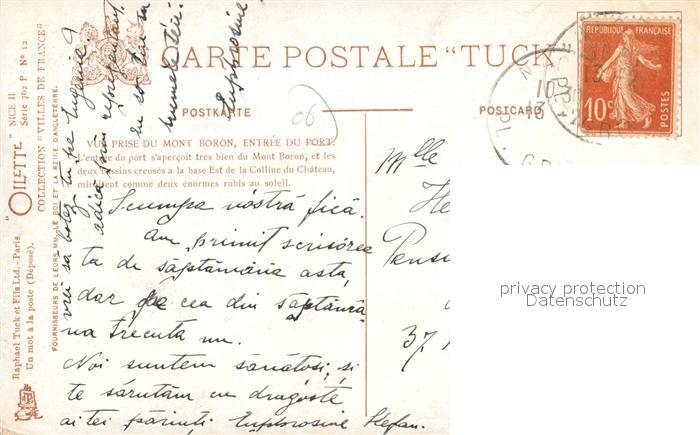 CARTE POSTALE "TUCK
POSTKARTE
POSTCARD
"OILETTE" NICE II
Série 702 P Nº 12
COLLECTION "VILLES DE FRANCE"
Raphael Tuck et Fils Ltd.-Paris.
Un mot à la poste (Déposé).
FOURNISSEURS DE LEURS MM. LE ROI ET LA REINE D'ANGLETERRE.
06
VUE PRISE DU MONT BORON, ENTRÉE DU PORT.
L'entrée du port s'aperçoit tres bien du Mont Boron, et les
deux bassins creusés à la base Est de la Colline du Château,
miroitent comme deux énormes rubis au soleil.
Scumpa nóstră fică.
Am primit scrisórea
ta de săptămâna asta,
dar pe cea din săptămâ
na trecuta nu.
Noi suntem sănătoși, si
te sărutăm cu dragoste
ai tei părinți Euphrosine Stefan.
numele tĕŭ.
Euphrosine
REPUBLIQUE FRANÇAISE
10c
POSTES
10
13
Mlle
He
Pensi
37
privacy protection
Datenschutz